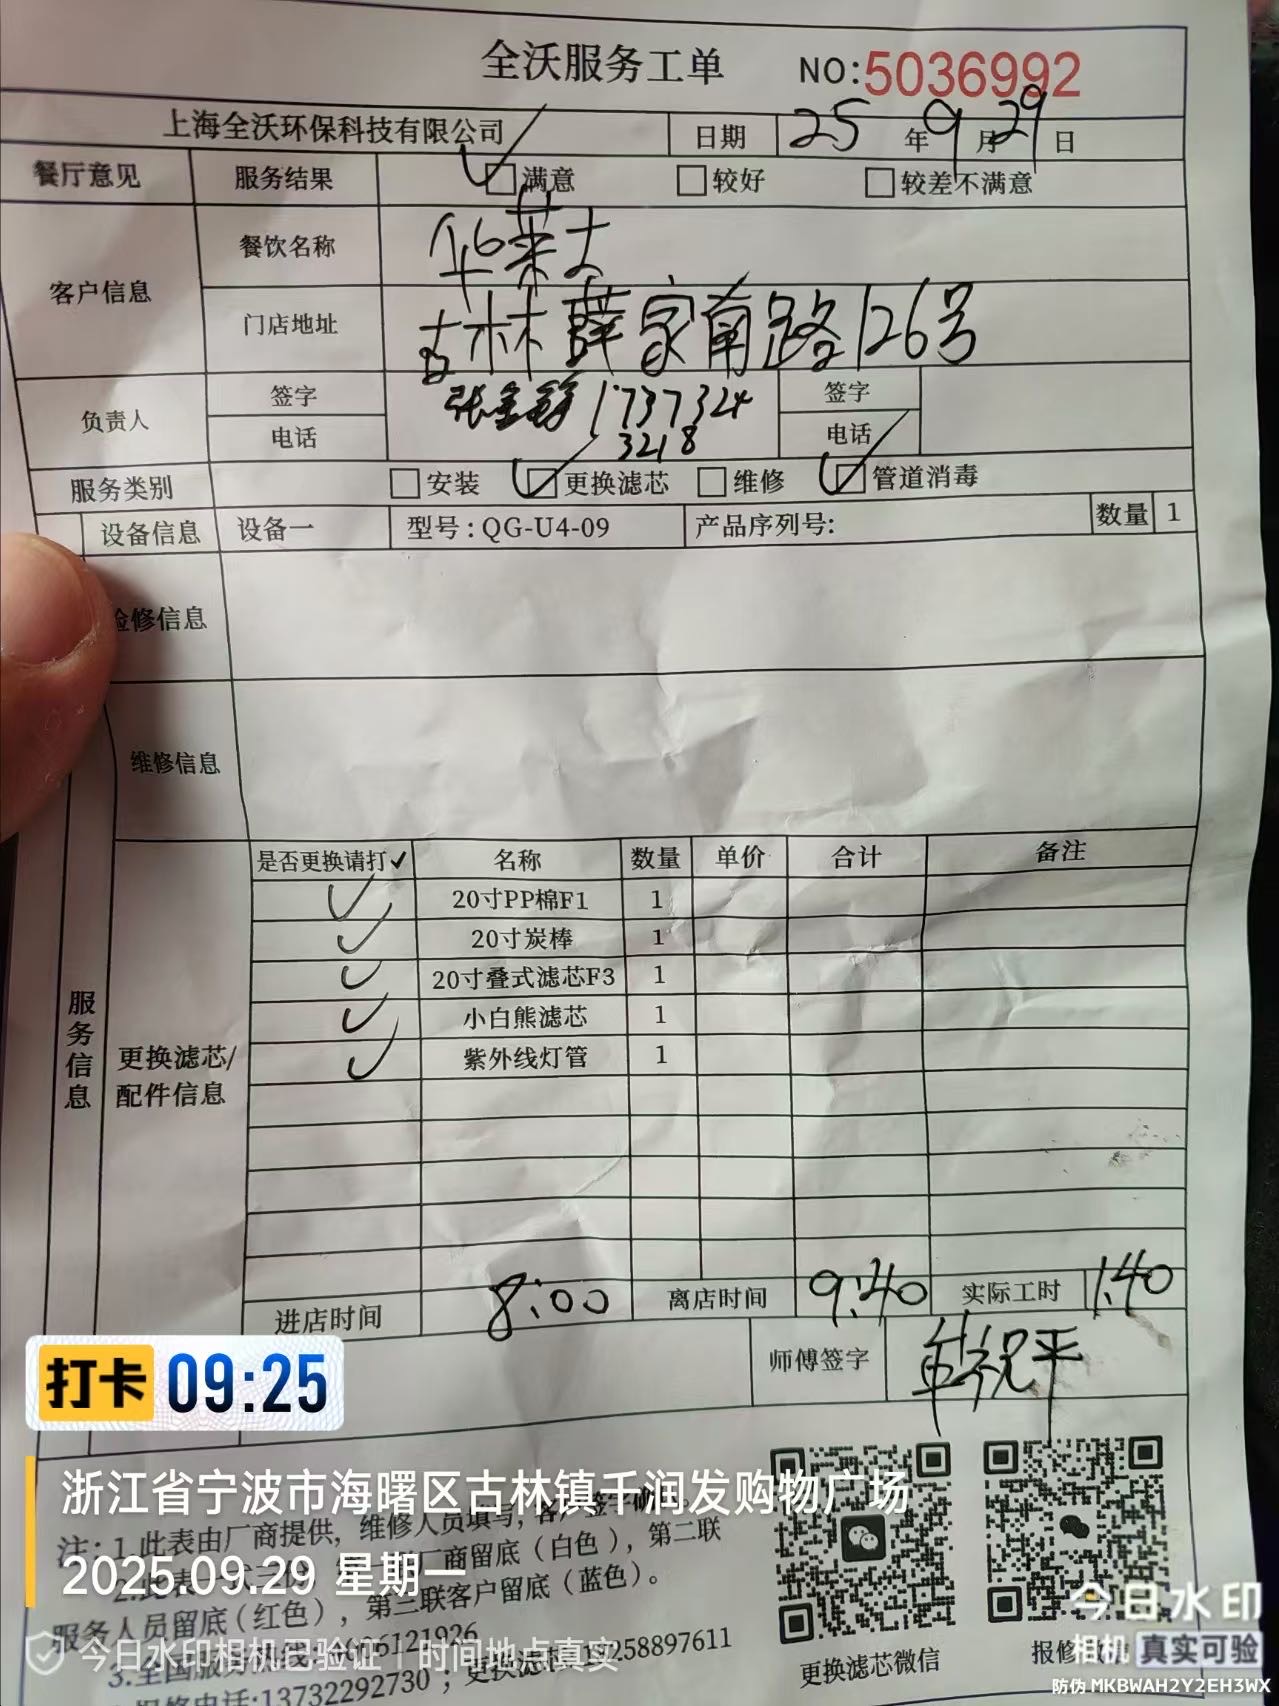 全沃服务工单 NO:5036992
上海全沃环保科技有限公司 日期 25年9月29日
餐厅意见 服务结果 满意 较好 较差不满意
客户信息 餐饮名称 华莱士
门店地址 古林薛家南路126号
负责人 签字 张金 1737324 签字
电话 3218 电话
服务类别 安装 更换滤芯 维修 管道消毒
设备信息 设备一 型号:QG-U4-09 产品序列号: 数量 1
检修信息
维修信息
服务信息
更换滤芯/
配件信息
是否更换请打✓ 名称 数量 单价 合计 备注
✓ 20寸PP棉F1 1
✓ 20寸炭棒 1
✓ 20寸叠式滤芯F3 1
✓ 小白熊滤芯 1
✓ 紫外线灯管 1
进店时间 8:00 离店时间 9:40 实际工时 1:40
师傅签字 祝平
打卡 09:25
浙江省宁波市海曙区古林镇千润发购物广场
注:1.此表由厂商提供,维修人员填写,客户签字确
2025.09.29 星期一
厂商留底(白色),第二联
服务人员留底(红色),第三联客户留底(蓝色)。
3.全国服务热线: 6121926
今日水印相机已验证 时间地点真实
电话:13732292730;更换滤芯 258897611
更换滤芯微信
报修
今日水印
相机 真实可验
防伪 MKBWAH2Y2EH3WX